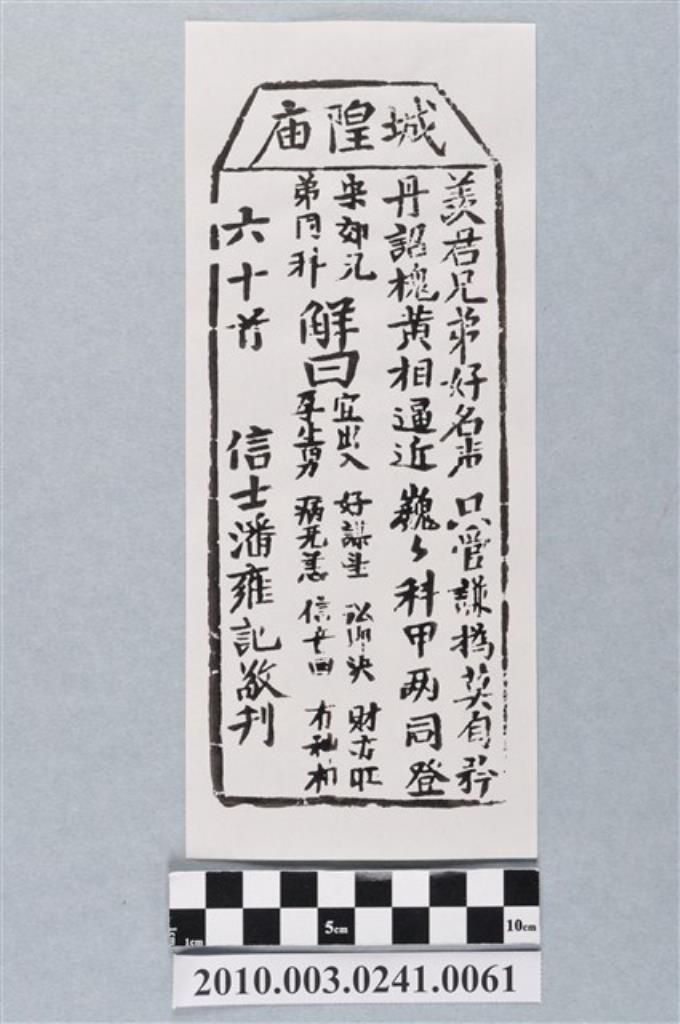 城隍庙
羨君兄弟好名声 只管謙撝莫自矜
丹詔槐黄相逼近 巍々科甲两同登
宋郊兄
弟同科
解曰
宜出入 好謀望 訟即决 财亦旺
孕生男 病无恙 信 回 有神相
六十首 信士潘雍記敬刊
5cm
10cm
1cm
2010.003.0241.0061